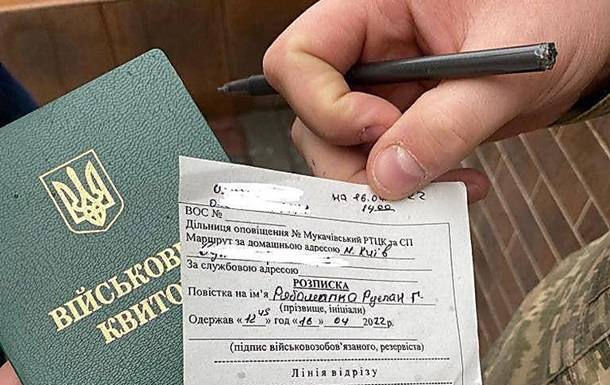 ВІЙСЬКОВ
ВІЙСЬКОВ
КВИТО
на 16.04. 22
14.00
ВОС №
Дільниця оповіщення № Мукачівський РТЦК та СП
Маршрут за домашньою адресою м. Київ
За службовою адресою
РОЗПИСКА
Повістка на ім'я Руслан Г.
(прізвище, ініціали)
Одержав «12 45» год «16» 04 2022р.
(підпис військовозобов'язаного, резервіста)
Лінія відрізу